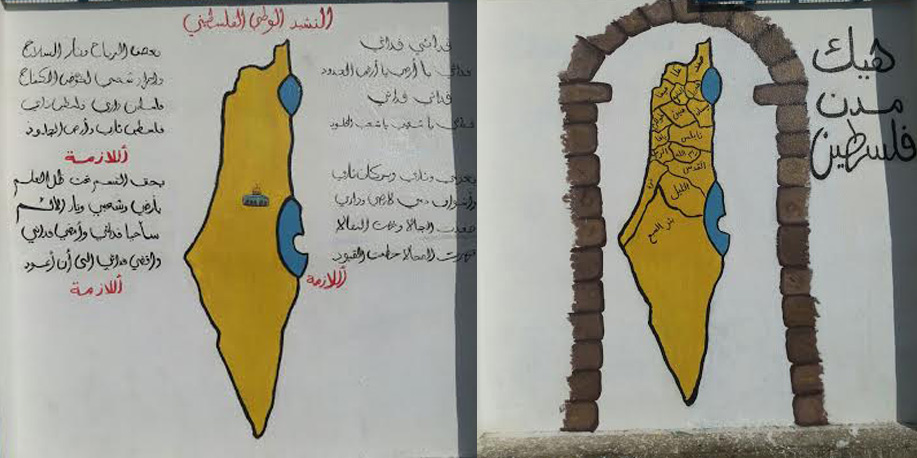 النشيد الوطني الفلسطيني
فدائي فدائي
فدائي يا أرضي يا أرض الجدود
فدائي فدائي
فدائي يا شعبي يا شعب الخلود
بعزمي وناري وبركان ثأري
وأشواق دمي لأرضي وداري
صعدت الجبال وخضت النضال
قهرت المحال حطمت القيود
أللازمة
بعصف الرياح ونار السلاح
وإصرار شعبي لخوض الكفاح
فلسطين داري فلسطين ناري
فلسطين ثأري وأرض الجدود
أللازمة
بحق القسم تحت ظل العلم
بأرضي وشعبي ونار الألم
سأحيا فدائي وأمضي فدائي
وأقضي فدائي إلى أن أعود
أللازمة
هيك
مدن
فلسطين
صفد
عكا
حيفا
جنين
نابلس
يافا
رام الله
القدس
الخليل
بئر السبع